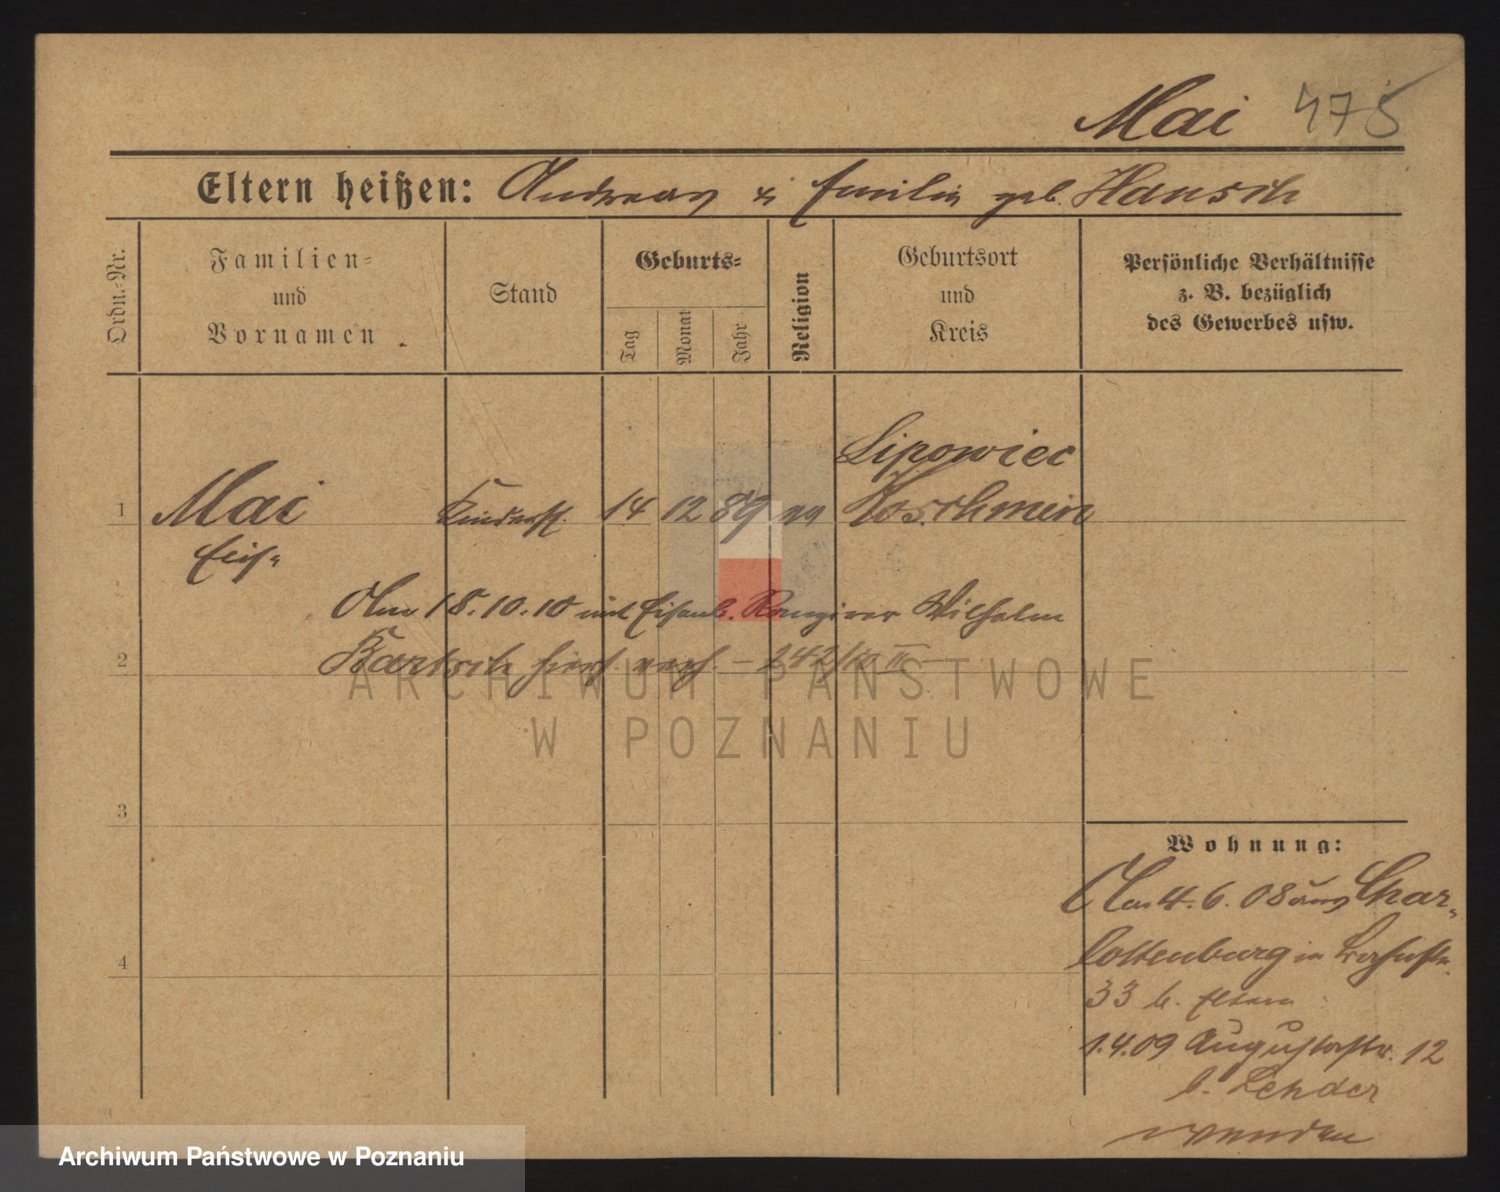 Mai 475
Eltern heißen: Andreas u. Emilie geb. Hansch
Ordn.-Nr.
Familien-
und
Vornamen
Stand
Geburts-
Tag
Monat
Jahr
Religion
Geburtsort
und
Kreis
Persönliche Verhältnisse
z. B. bezüglich
des Gewerbes usw.
Lipowiec
1 Mai 14 12 89 Koschmin
Am 18.10.10 mit Eisenb. Rangierer Wilhelm
2 Bartsch hier verh. – 242/10 II –
ARCHIWUM PAŃSTWOWE
W POZNANIU
3
Wohnung:
Am 4.6.08 aus Char-
lottenburg in
4
33 b. Eltern
1.4.09 Augustastr. 12
b. Zehder
wenden
Archiwum Państwowe w Poznaniu